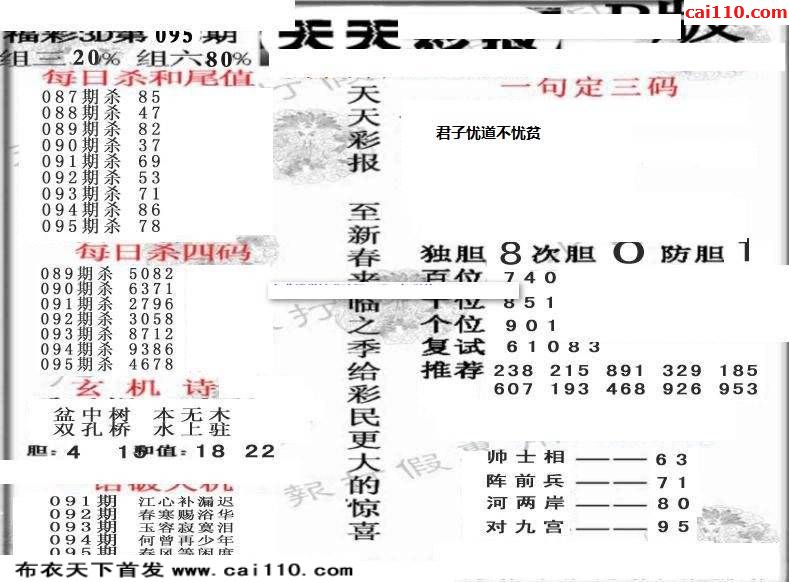 cai110.com
福彩3D第095期
天天彩报
版
组三20% 组六80%
每日杀和尾值
087期杀 85
088期杀 47
089期杀 82
090期杀 37
091期杀 69
092期杀 53
093期杀 71
094期杀 86
095期杀 78
每日杀四码
089期杀 5082
090期杀 6371
091期杀 2796
092期杀 3058
093期杀 8712
094期杀 9386
095期杀 4678
玄机诗
盆中树 本无木
双孔桥 水上驻
胆:4 15 和值:18 22
语破天机
091期 江心补漏迟
092期 春寒赐浴华
093期 玉容寂寞泪
094期 何曾再少年
095期 春风等闲度
天天彩报 至新春来临之季给彩民更大的惊喜
一句定三码
君子忧道不忧贫
独胆 8 次胆 0 防胆 1
百位 740
十位 851
个位 901
复试 61083
推荐 238 215 891 329 185
607 193 468 926 953
帅士相——63
阵前兵——71
河两岸——80
对九宫——95
布衣天下首发 www.cai110.com